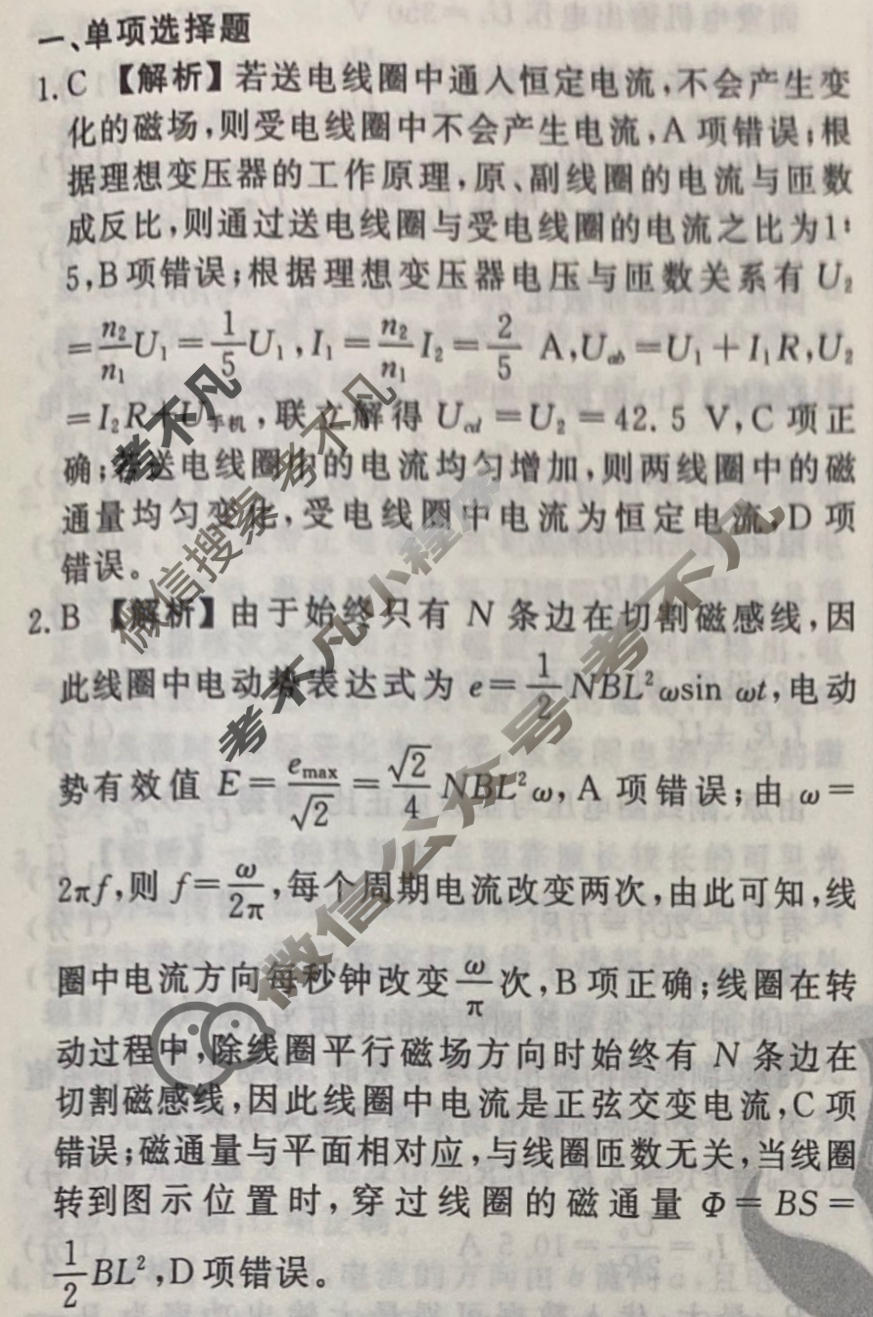 一、单项选择题
1. C 【解析】若送电线圈中通入恒定电流,不会产生变
化的磁场,则受电线圈中不会产生电流,A 项错误;根
据理想变压器的工作原理,原、副线圈的电流与匝数
成反比,则通过送电线圈与受电线圈的电流之比为1∶
5,B项错误;根据理想变压器电压与匝数关系有 U₂
=n₂/n₁ U₁=1/5 U₁,I₁=n₂/n₁ I₂=2/5 A,U_ab=U₁+I₁R,U₂
=I₂R+U手机,联立解得 U_cd=U₂=42.5 V,C 项正
确;若送电线圈中的电流均匀增加,则两线圈中的磁
通量均匀变化,受电线圈中电流为恒定电流,D 项
错误。
2. B 【解析】由于始终只有 N 条边在切割磁感线,因
此线圈中电动势表达式为 e=1/2 NBL²ωsin ωt,电动
势有效值 E=e_max/√2=√2/4 NBL²ω,A 项错误;由 ω=
2πf,则 f=ω/2π,每个周期电流改变两次,由此可知,线
圈中电流方向每秒钟改变 ω/π 次,B 项正确;线圈在转
动过程中,除线圈平行磁场方向时始终有 N 条边在
切割磁感线,因此线圈中电流是正弦交变电流,C 项
错误;磁通量与平面相对应,与线圈匝数无关,当线圈
转到图示位置时,穿过线圈的磁通量 Φ=BS=
1/2 BL²,D 项错误。
考不凡
微信搜索考不凡
考不凡小程序
微信公众号 考不凡